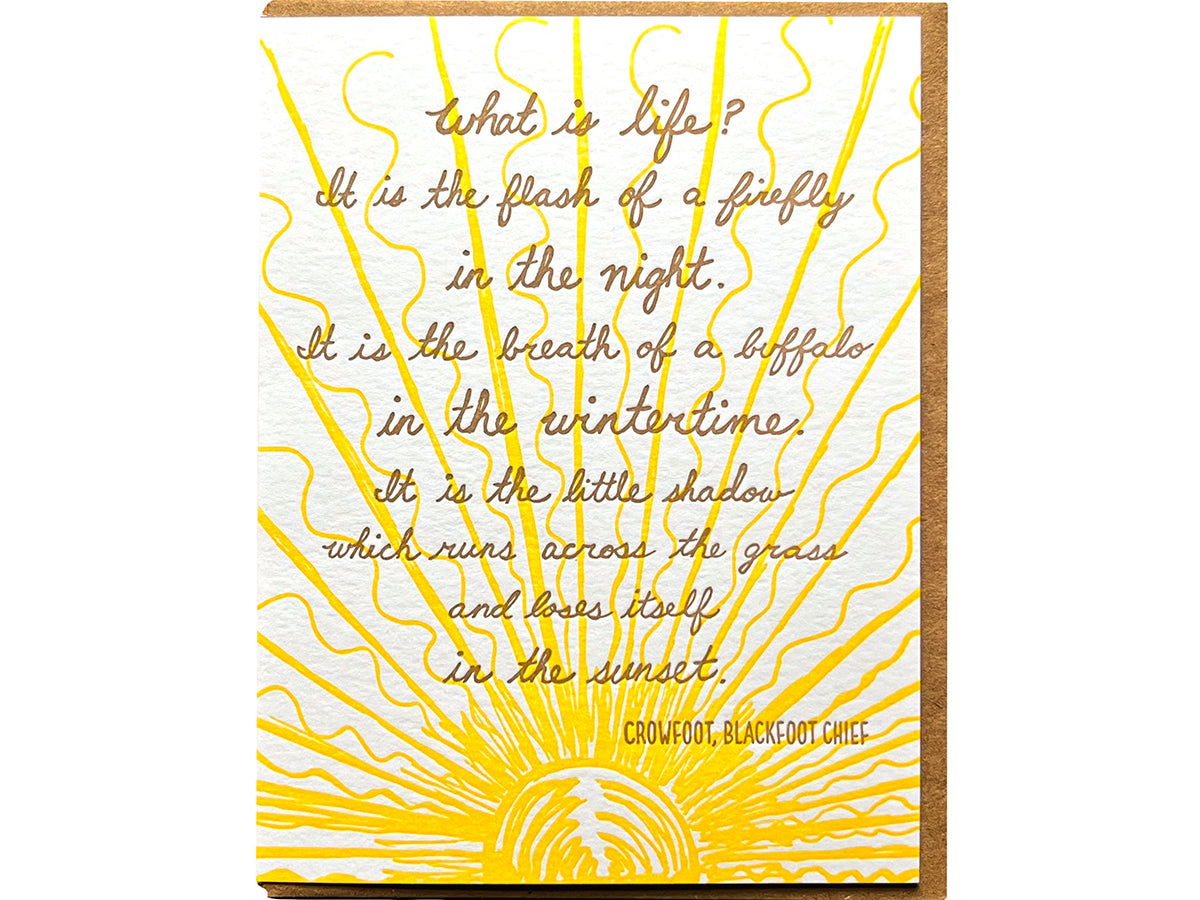 What is life?
It is the flash of a firefly
in the night.
It is the breath of a buffalo
in the wintertime.
It is the little shadow
which runs across the grass
and loses itself
in the sunset.
CROWFOOT, BLACKFOOT CHIEF